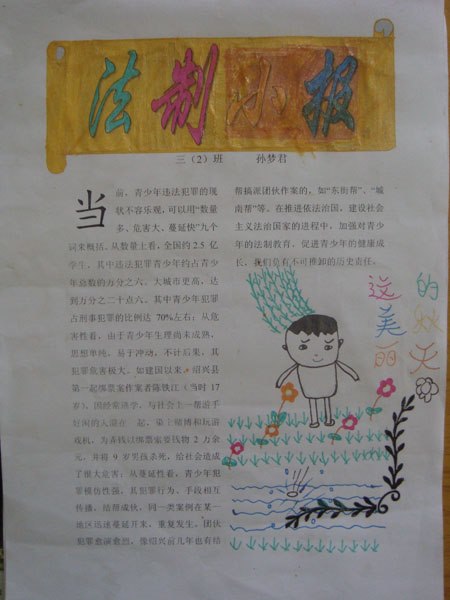 法制小报
三（2）班 孙梦君
当前，青少年违法犯罪的现
状不容乐观，可以用“数量
多、危害大、蔓延快”九个
词来概括。从数量上看，全国约2.5 亿
学生，其中违法犯罪青少年约占青少
年总数的万分之六，大城市更高，达
到万分之二十点六，其中青少年犯罪
占刑事犯罪的比例达 70%左右；从危
害性看，由于青少年生理尚未成熟，
思想单纯，易于冲动，不计后果，其
犯罪危害极大。如建国以来，绍兴县
第一起绑票案作案者陈铁江（当时 17
岁），因经常逃学，与社会上一帮游手
好闲的人混在一起，染上赌博和玩游
戏机，为弄钱以绑票索要钱物 2 万余
元，并将 9 岁男孩杀死，给社会造成
了很大危害；从蔓延性看，青少年犯
罪模仿性强，其犯罪行为、手段相互
传播，结帮成伙，同一类案例在某一
地区迅速蔓延开来，重复发生。团伙
犯罪愈演愈烈，像绍兴前几年也有结
帮搞派团伙作案的，如“东街帮”、“城
南帮”等。在推进依法治国，建设社会
主义法治国家的进程中，加强对青少
年的法制教育，促进青少年的健康成
长，我们负有不可推卸的历史责任。
这美丽
的秋天